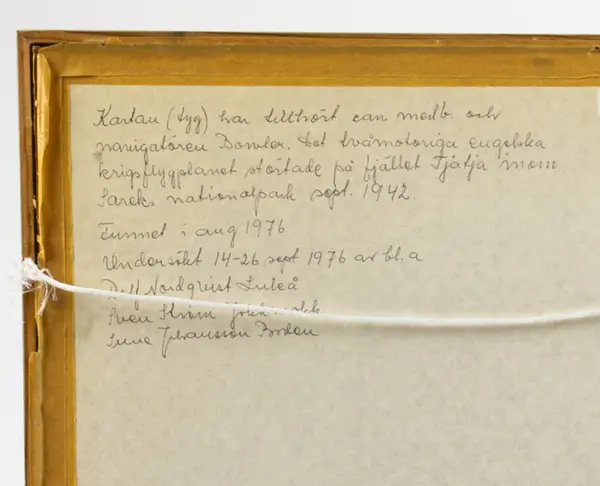 Kartan (tyg) har tillhört can medb. och
navigatören Bowler. Det tvåmotoriga engelska
krigsflygplanet störtade på fjället Tjåtja inom
Sareks nationalpark sept. 1942.
Funnet i aug 1976
Undersökt 14-26 sept 1976 av bl.a
Nordqvist Luleå
Sven Ström
Sune Johansson Boden